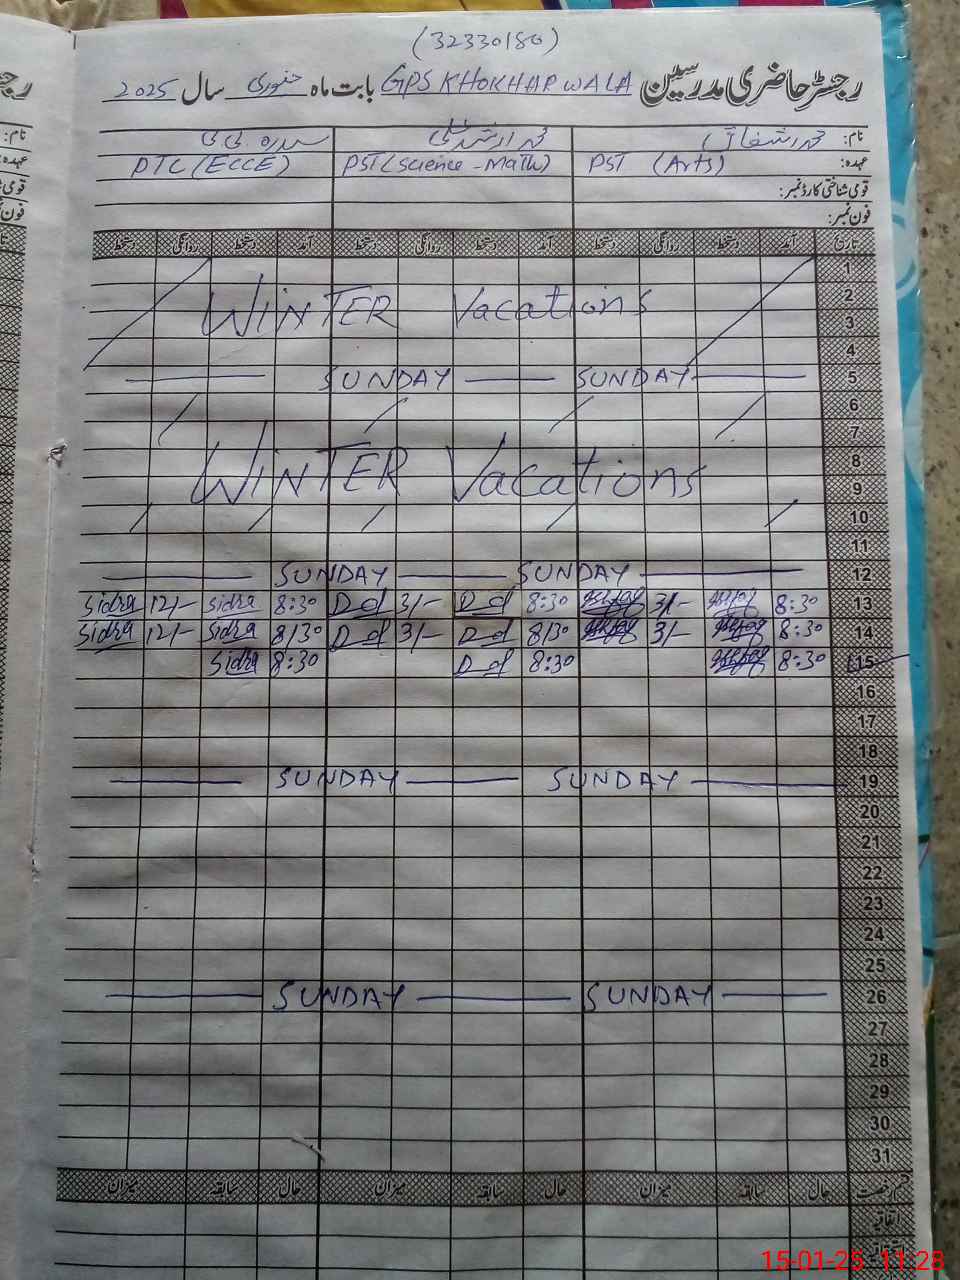 (32330180)
رجسٹر حاضری مدرسین GPS KHOKHAR WALA بابت ماہ جنوری سال 2025
نام: محمد اشفاق محمد ارشد علی سدرہ بی بی
عہدہ: PST (Arts) PST (Science - Math) PTC (ECCE)
قومی شناختی کارڈ نمبر:
فون نمبر:
تاریخ آمد دستخط روانگی دستخط آمد دستخط روانگی دستخط آمد دستخط روانگی دستخط
1
2 WINTER Vacations
3
4
5 SUNDAY SUNDAY
6
7
8 WINTER Vacations
9
10
11
12 SUNDAY SUNDAY
13 8:30 3/- 8:30 3/- 8:30 Sidra 12/- Sidra
14 8:30 3/- 8/30 3/- 8/30 Sidra 12/- Sidra
15 8:30 8:30 8:30 Sidra
16
17
18
19 SUNDAY SUNDAY
20
21
22
23
24
25
26 SUNDAY SUNDAY
27
28
29
30
31
حال سابقہ میزان حال سابقہ میزان حال سابقہ میزان
اتفاقیہ
15-01-25 11:28